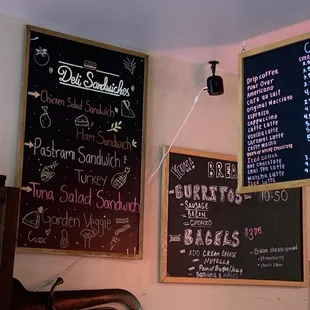 Deli Sandwiches
Chicken Salad Sandwich
Ham Sandwich
Pastrami Sandwich
Turkey
Tuna Salad Sandwich
Garden Veggie
BREA
BURRITOS
10:50
Sausage
Bacon
Chorizo
BAGELS
$3.75
ADD CREAM CHEESE
NUTELLA
Cream cheese spread
Drip coffee
Pour Over
Americano
Cafe au lait
Original Macciato
Espresso
Cappuccino
Caffe Latte
Vanilla Latte
Caramel Latte
Mocha Latte
Chai Latte
Hot Chocolate
Iced Latte
Matcha Latte